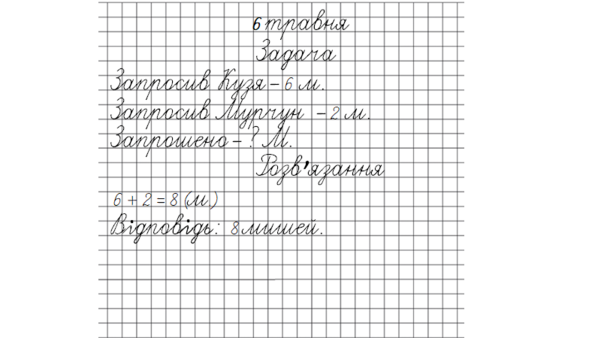 6 травня
Задача
Запросив Кузя – 6 м.
Запросив Мурчун – 2 м.
Запрошено – ? М.
Розв'язання
6 + 2 = 8 (м)
Відповідь: 8 мишей.